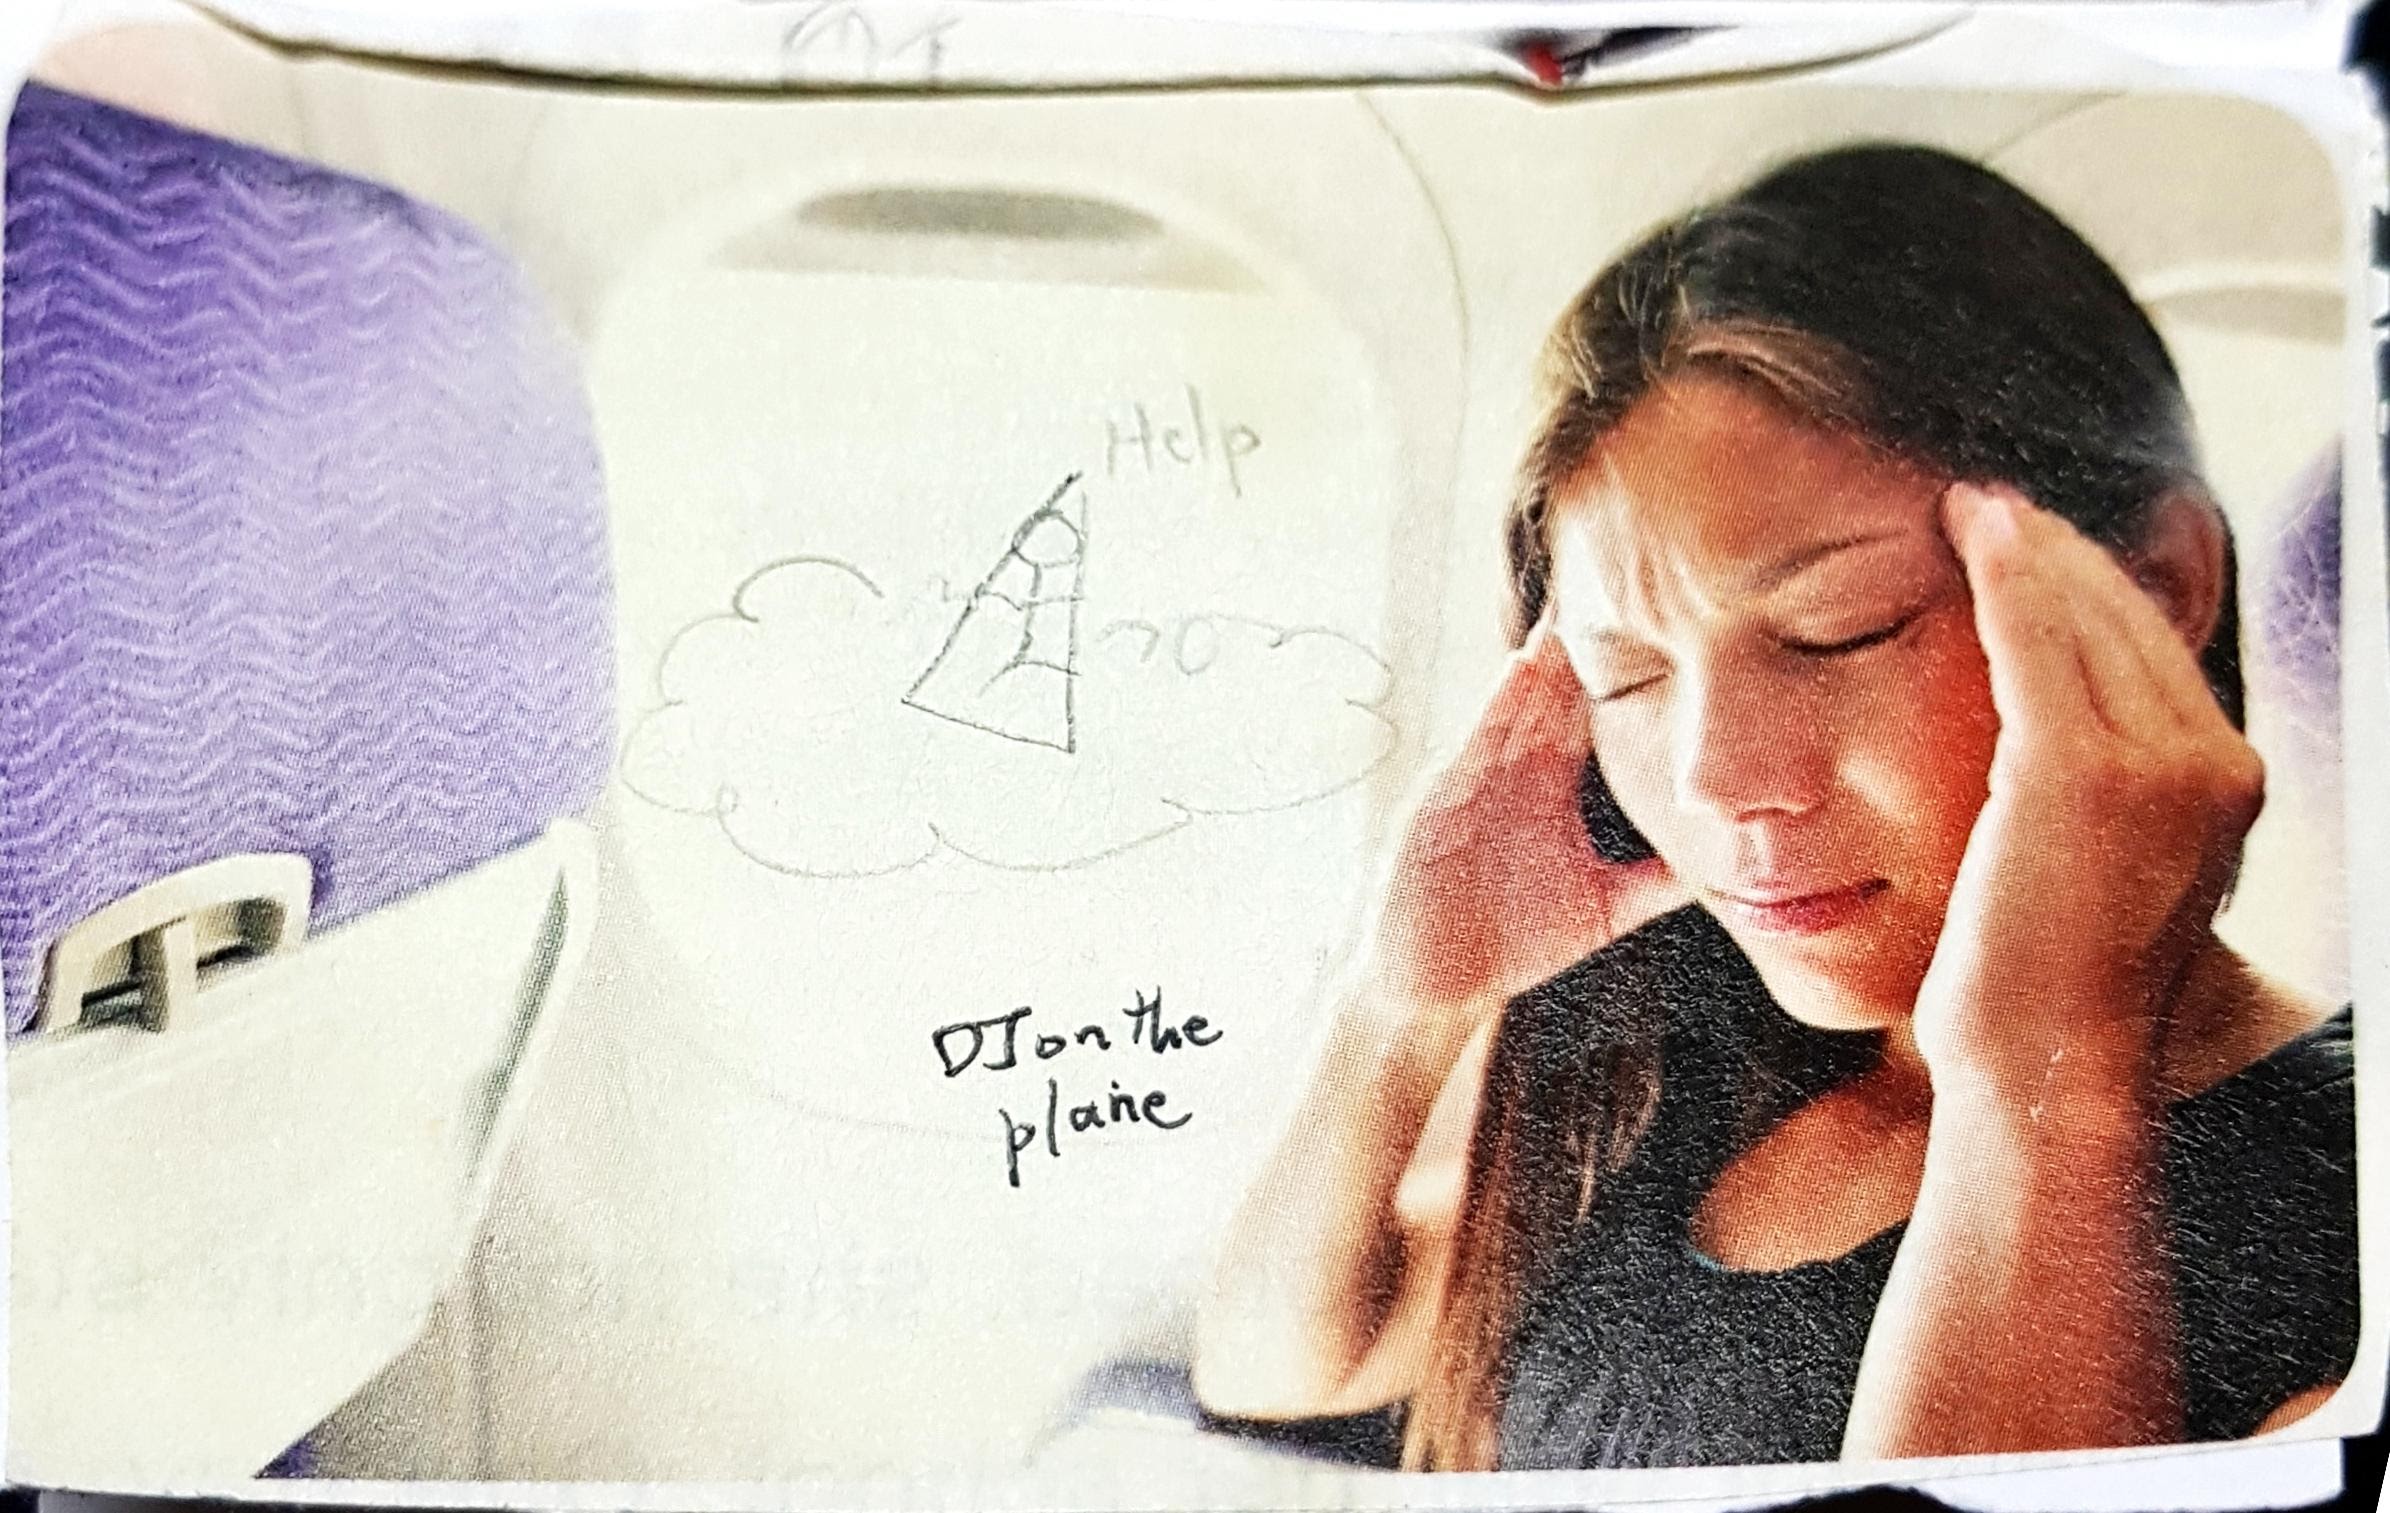 Help
DJ on the
plane